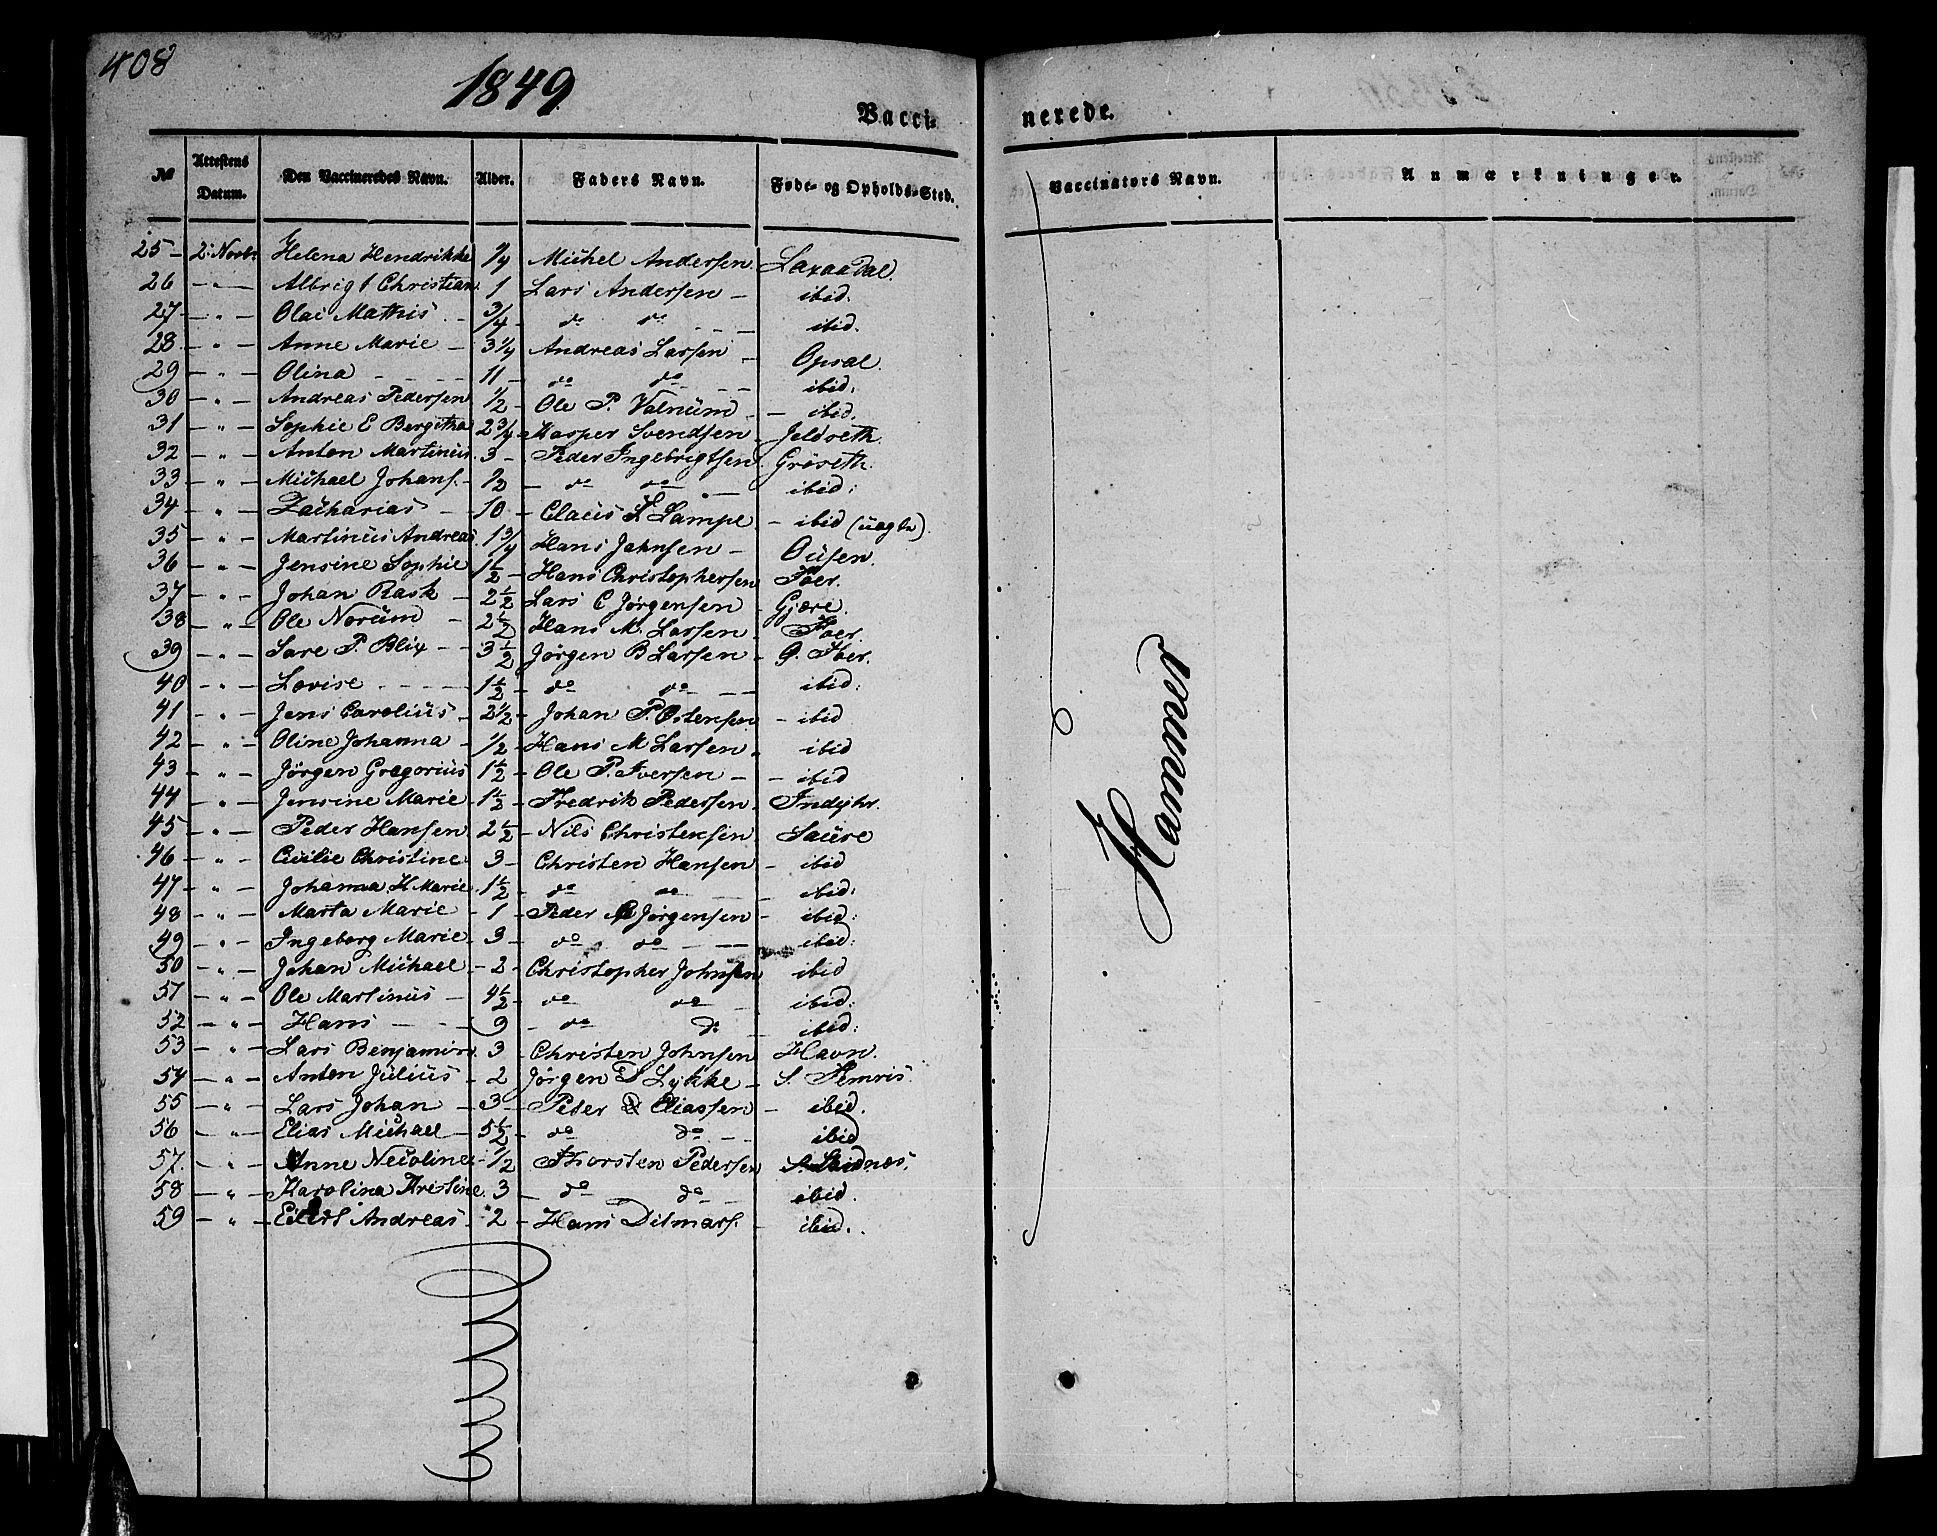 408
1849
Vacci- nerede.
No Attestens Datum. Den Vaccineredes Navn. Alder. Faders Navn. Føde- og Opholds-Sted. Vaccinators Navn. Anmærkninger.
25 - 2. Novbr Helena Hendrikke 1/4 Michel Andersen Laxaadal.
26 - " - Albrigt Christian 1 Lars Andersen - ibid.
27 - " - Olai Mathis - 3/4 - do do - - ibid.
28 - " - Anne Marie - 3 1/4 Andreas Larsen - Opsal.
29 - " - Olina - - - 11 - do do - - ibid.
30 - " - Andreas Pedersen 1/2 - Ole P. Valnüm - - ibid.
31 - " - Sophie E Bergitha 2 3/4 Kasper Svendsen - Jeldseth.
32 - " - Anton Martinüs 3 - Peder Ingebrigtsen Gröseth.
33 - " - Michael Johans. - 1/2 - do do - - ibid:
34 - " - Zacharias - 10 - Claüs Lampe - ibid (üægte).
35 - " - Martinüs Andreas 1 3/4 Hans Jahnsen - Oüsen.
36 - " - Jensine Sophie 1 1/2 - Hans Christophersen
37 - " - Johan Rask - 2 1/2 Lars C Jörgensen - Gjære.
38 - " - Ole Norüm - 2 1/2 Hans M. Larsen -
39 - " - Sare P. Blix - - 3 1/2 Jörgen B Larsen -
40 - " - Lovise - - - 1 1/2 - do do - - ibid:
41 - " - Jens Carolius - 2 1/2 - Johan P. Ostensen - ibid
42 - " - Oline Johanna - 1/2 - Hans M Larsen - ibid
43 - " - Jörgen Gregorius 1 1/2 - Ole P. Iversen - - ibid
44 - " - Jensine Marie - 1 1/2 - Fredrik Pedersen - Indyhr.
45 - " - Peder Hansen 2 1/2 - Nils Christensen Saüre
46 - " - Cicilie Christine 3 - Christen Hansen - ibid
47 - " - Johanna H Marie 1 1/2 - do do - ibid:
48 - " - Marta Marie - 1 - Peder Jörgensen - ibid:
49 - " - Ingeborg Marie - 3 - do do - - ibid:
50 - " - Johan Michael - 2 - Christopher Johnsen ibid
51 - " - Ole Martinüs - 4 1/2 - do do - ibid:
52 - " - Hans - - 9 - do do - ibid:
53 - " - Lars Benjamin 3 - Christen Johnsen Havn.
54 - " - Anton Jülius - 2 Jörgen Lykke - S. Femris
55 - " - Lars Johan - 3 - Peder Eliassen - ibid.
56 - " - Elias Michael - 5 1/2 - do do - - ibid
57 - " - Anne Necoline - 1/2 Thorsten Pedersen
58 - " - Karolina Kristine 3 - do do - ibid.
59 - " - Andreas - 2 - Hans Ditmars. - ibid.
Hammer